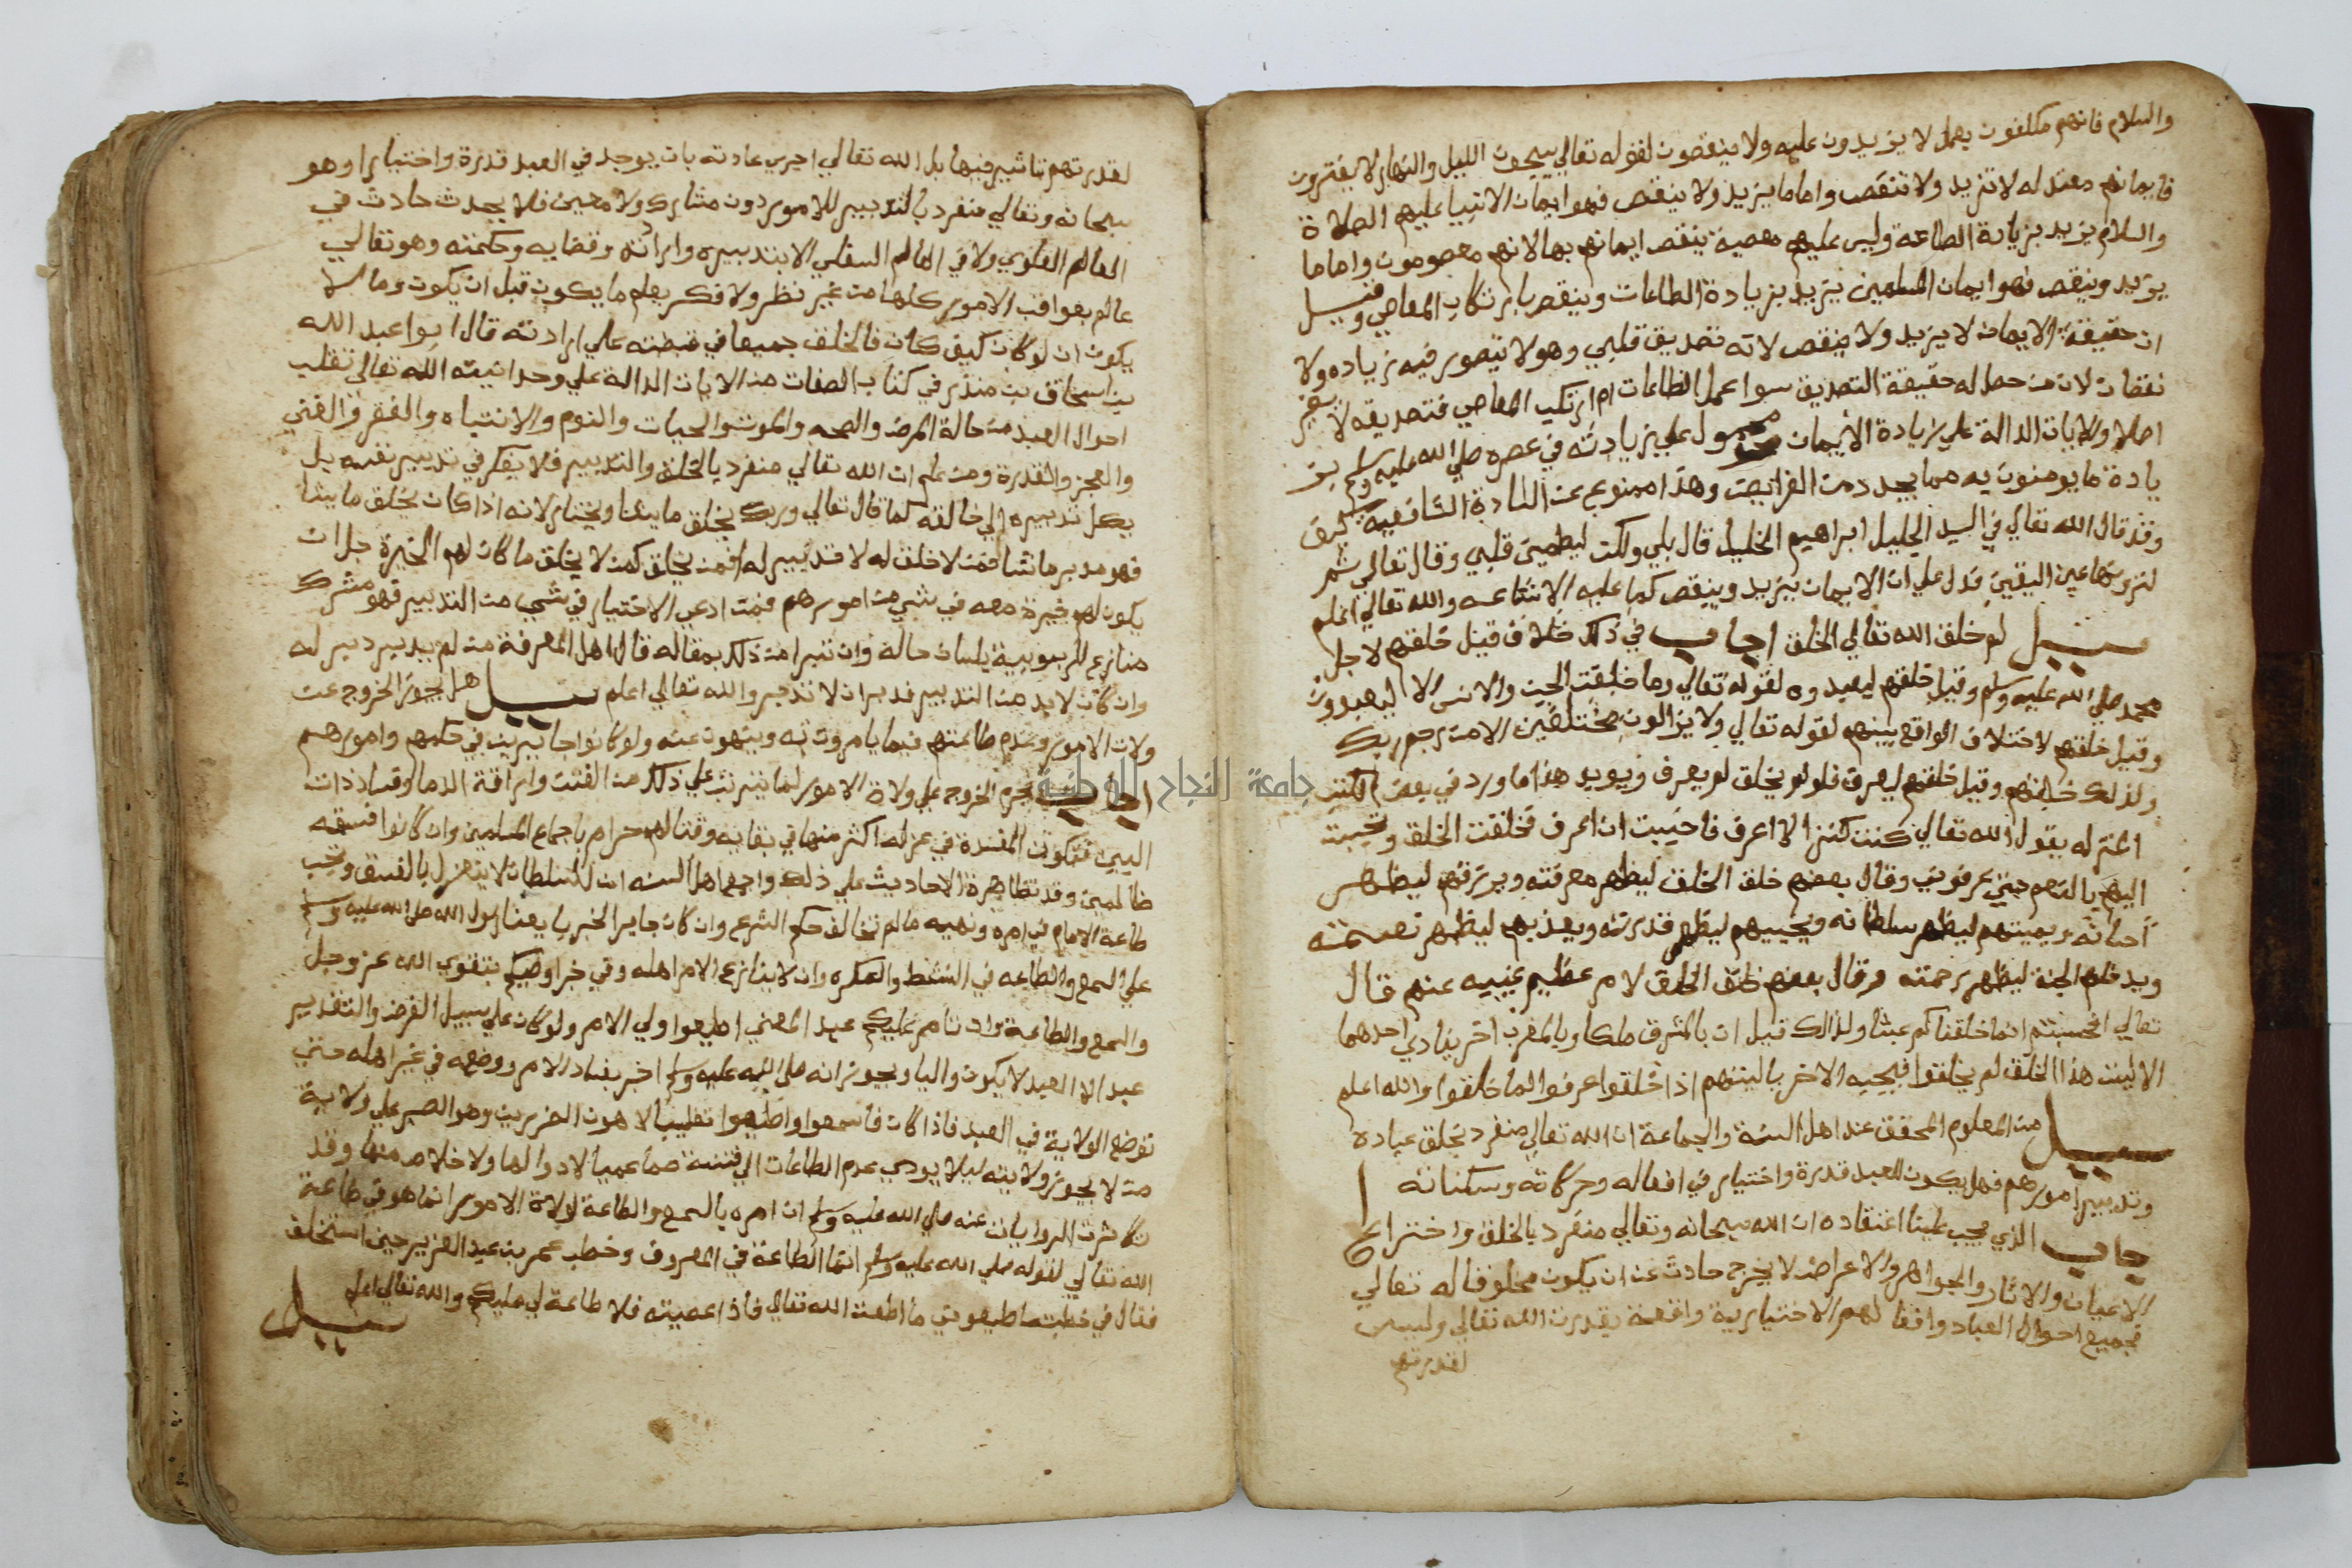 والسلام فانهم مكلفون بعمل لا يزيدون عليه ولا ينقصون لقوله تعالي يسبحون الليل والنهار لا يفترون
فايمانهم معتدله لا تزيد ولا تنقص واما ما يزيد ولا ينقص فهو ايمان الانبيا عليهم الصلاة
والسلام يزيد بزيادة الطاعة وليس عليهم معصية ينقص ايمانهم بها لانهم معصومون واما ما
يزيد وينقص فهو ايمان المسلمين يزيد بزيادة الطاعات وينقص بارتكاب المعاصي وقيل
ان حقيقة الايمان لا يزيد ولا ينقص لانه تصديق قلبي وهو لا يتصور فيه زياده ولا
نقصان لان من حصل له حقيقة التصديق سوا عمل الطاعات ام ارتكب المعاصي فتصديقه لا يتغير
اصلا والايات الدالة علي زيادة الايمان محمول علي زيادته في عصره صلي الله عليه وسلم بز
يادة ما يومنون به مما يجدد من الفرايض وهذا ممنوع عن السادة الشافعيه كيف
وقد قال الله تعالي في السيد الجليل ابراهيم الخليل قال بلي ولكن ليطمين قلبي وقال تعالي ثم
لترونها عين اليقين فدل علي ان الايمان يزيد وينقص كما عليه الاشاعه والله تعالي اعلم
سيل لم خلق الله تعالي الخلق اجاب في ذلك خلاف قيل خلقهم لاجل
محمد صلي الله عليه وسلم وقيل خلقهم ليعبدوه لقوله تعالي وما خلقت الجن والانس الا ليعبدون
وقيل خلقهم لاختلاف الواقع بينهم لقوله تعالي ولا يزالون مختلفين الا من رحم ربك
ولذلك خلقهم وقيل خلقهم ليعرف فلو لم يخلق لم يعرف ويويد هذا ما ورد في بعض الكتب
المنزله يقول الله تعالي كنت كنزا لا اعرف فاحببت ان اعرف فخلقت الخلق وتحببت
اليهم بالنعم حتي عرفوني وقال بعضهم خلق الخلق ليظهر معرفته ويرزقهم ليظهر
احسانه ويميتهم ليظهر سلطانه ويحييهم ليظهر قدرته ويعذبهم ليظهر نقمته
ويدخلهم الجنة ليظهر رحمته وقال بعضهم خلق الخلق لامر عظيم غيبه عنهم قال
تعالي افحسبتم انما خلقناكم عبثا ولذالك قيل ان بالمشرق ملكا وبالمغرب اخر ينادي احدهما
الا ليت هذا الخلق لم يخلقوا فيجيبه الاخر يا ليتهم اذا خلقوا عرفوا لما خلقوا والله اعلم
سيل من المعلوم المحقق عند اهل السنة والجماعة ان الله تعالي منفرد بخلق عباده
وتدبير امورهم فهل يكون للعبد قدرة واختيار في افعاله وحركاته وسكناته ا
جاب الذي يجب علينا اعتقاده ان الله سبحانه وتعالي منفرد بالخلق واختراع
الاعيان والاثار والجواهر والاعراض لا يخرج حادث عن ان يكون مخلوقا له تعالي
فجميع احوال العباد وافعالهم الاختيارية واقعة بقدرت الله تعالي وليس
لقدرتهم
لقدرتهم تاثير فيها بل الله تعالي اجري عادته بان يوجد في العبد قدرة واختيارا وهو
سبحانه وتعالي منفرد بالتدبير للامور دون مشارك ولا معين فلا يحدث حادث في
العالم العلوي ولا في العالم السفلي الا بتدبيره وارادته وقضايه وحكمته وهو تعالي
عالم بعواقب الامور كلها من غير نظر ولا فكر يعلم ما يكون قبل ان يكون وما لا
يكون ان لو كان كيف كان فالخلق جميعا في قبضته علي ارادته قال ابوا عبد الله
بن اسحاق بن منذر في كتاب الصفات من الايات الدالة علي وحدانيته الله تعالي تقلب
احوال العبد من حالة المرض والصحه والموت والحيات والنوم والانتباه والفقر والغني
والعجز والقدرة ومن علم ان الله تعالي منفرد بالخلق والتدبير فلا يفكر في تدبير نفسه بل
يكل تدبيره الي خالقه كما قال تعالي وربك يخلق ما يشا ويختار لانه اذا كان يخلق ما يشا
فهو مدبر ما شا فمن لا خلق له لا تدبير له افمن يخلق كمن لا يخلق ما كان لهم الخيرة جل ان
يكون لهم خيرة معه في شي من امورهم فمن ادعي الاختيار في شي من التدبير فهو مشرك
منازع للربوبية بلسان حاله وان تبرا من ذلك بمقاله قال اهل المعرفة من لم يدبير دبر له
وان كان لا بد من التدبير فدبر ان لا تدبر والله تعالي اعلم سيل هل يجوز الخروج عن
ولات الامور وعدم طاعتهم فيما يامرون به وينهون عنه ولو كانوا جايرين في حكمهم وامورهم
اجاب يحرم الخروج علي ولاة الامور لما يترتب علي ذلك من الفتن واراقة الدما وفساد ذات
البين فتكون المفسدة في عزله اكثر منها في بقايه وقتالهم حرام باجماع المسلمين وان كانوا فسقه
ظالمين وقد تظاهرة الاحاديث علي ذلك واجمع اهل السنه ان السلطان لا ينعزل بالفسق وتجب
طاعة الامام في امره ونهيه ما لم تخالف حكم الشرع وان كان جايرا لخبر بايعنا رسول الله صلي الله عليه وسلم
علي السمع والطاعه في المنشط والمكره وان لا ينازع الامر اهله وفي خبر اوصيكم بتقوي الله عز وجل
والسمع والطاعة وان تامر عليكم عبد المعني اطيعوا ولي الامر ولو كان علي سبيل الفرض والتقدير
عبد اذ العبد لا يكون واليا ويجوز انه صلي الله عليه وسلم اخبر بفساد الامر ووضعه في غير اهله حتي
توضع الولاية في العبد فاذا كان فاسمعوا واطيعوا تغليبا لاهون الضررين وهو الصبر علي ولاية
من لا يجوز ولايته ليلا يودي عدم الطاعات الي فتنة صما عميا لا دوا لها ولا خلاص منها وقد
تكاثرت الروايات عنه صلي الله عليه وسلم ان امره بالسمع والطاعة لولاة الامور انما هو في طاعة
الله تعالي لقوله صلي الله عليه وسلم انما الطاعة في المعروف وخطب عمر بن عبد العزيز حين استخلف
فقال في خطبته اطيعوني ما اطعت الله تعالي فاذا عصيته فلا طاعة لي عليكم والله تعالي اعلم سيل
جامعة النجاح الوطنية